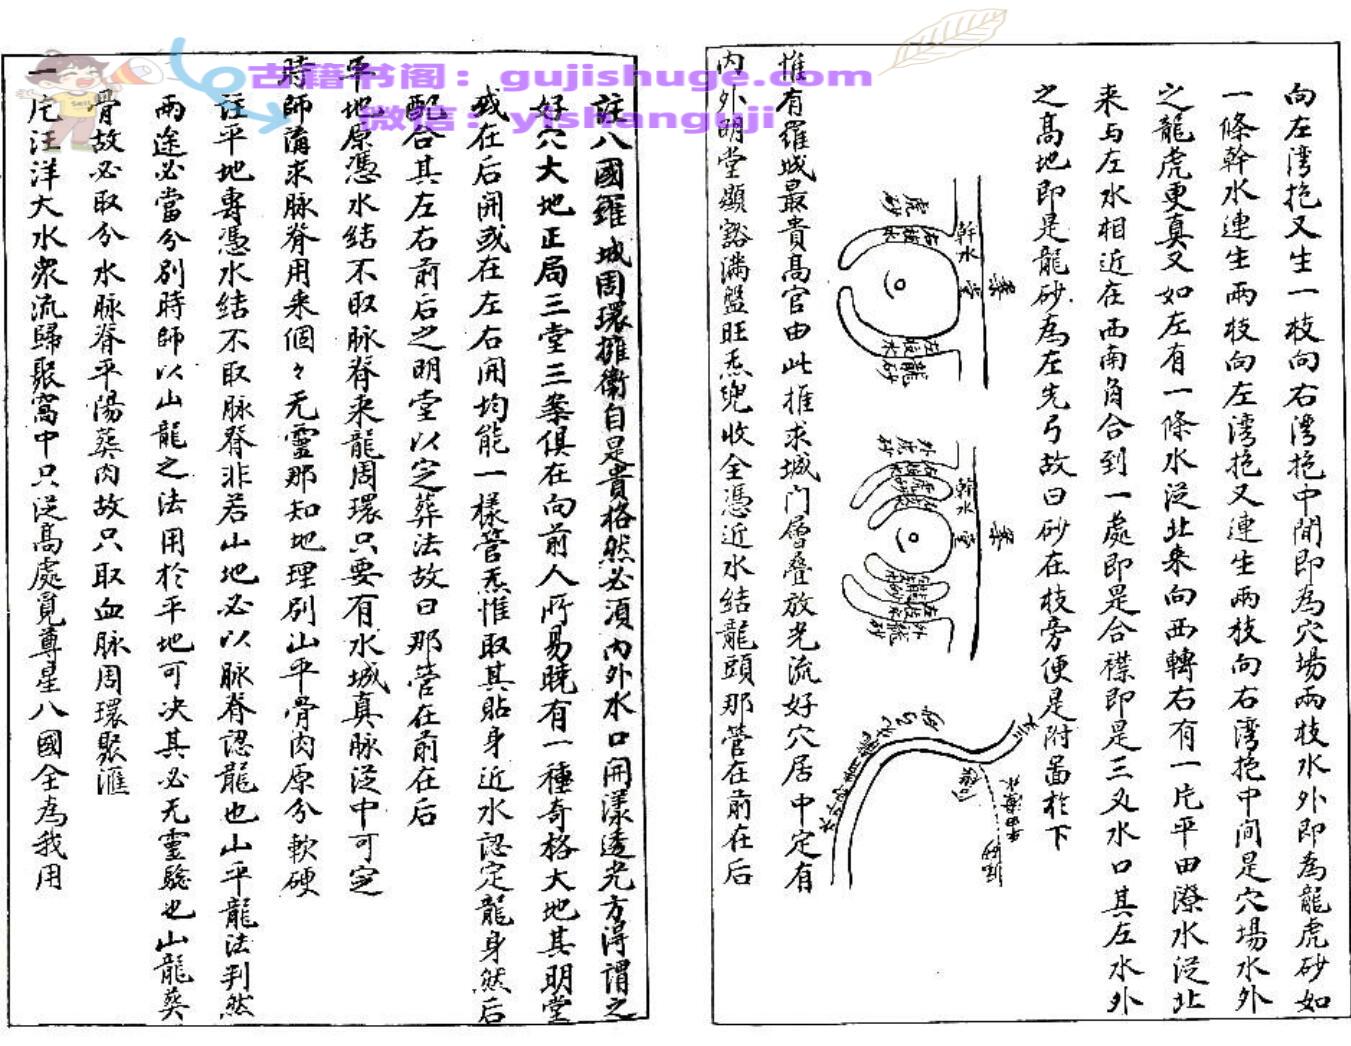 古籍书阁：gujishuge.com
微信：yishanguji
向左湾抱又生一枝向右湾抱中間即為穴場兩枝水外即為龍虎砂如
一條幹水連生兩枝向左湾抱又連生兩枝向右湾抱中间是穴場水外
之龍虎更真又如左有一條水泛北来向西轉右有一片平田潦水泛北
来与左水相近在西南角合到一處即是合襟即是三叉水口其左水外
之高地即是龍砂為左先弓故曰砂在枝旁便是附啚於下
案
堂
幹水
虎砂
龍砂
案
堂
幹水
外虎砂
外龍砂
惟有羅城最貴高官由此推求城门層叠放光流好穴居中定有
内外明堂顯豁满盤旺炁兜收全憑近水结龍頭那管在前在后
註八國羅城周環擁衛自是貴格然必須内外水口開漾透光方得謂之
好穴大地正局三堂三案俱在向前人所易曉有一種奇格大地其明堂
或在后開或在左右開均能一樣管炁惟取其貼身近水認定龍身然后
配合其左右前后之明堂以定葬法故曰那管在前在后
平地原憑水结不取脉脊来龍周環只要有水城真脉泛中可定
時師蒲求脉脊用来個々无靈那知地理别山平骨肉原分軟硬
註平地專憑水结不取脉脊非若山地必以脉脊認龍也山平龍法判然
兩途必當分别時師以山龍之法用於平地可决其必无靈驗也山龍葬
骨故必取分水脉脊平陽葬肉故只取血脉周環聚滙
一片汪洋大水衆流歸聚窩中只泛高處覓尊星八國全為我用